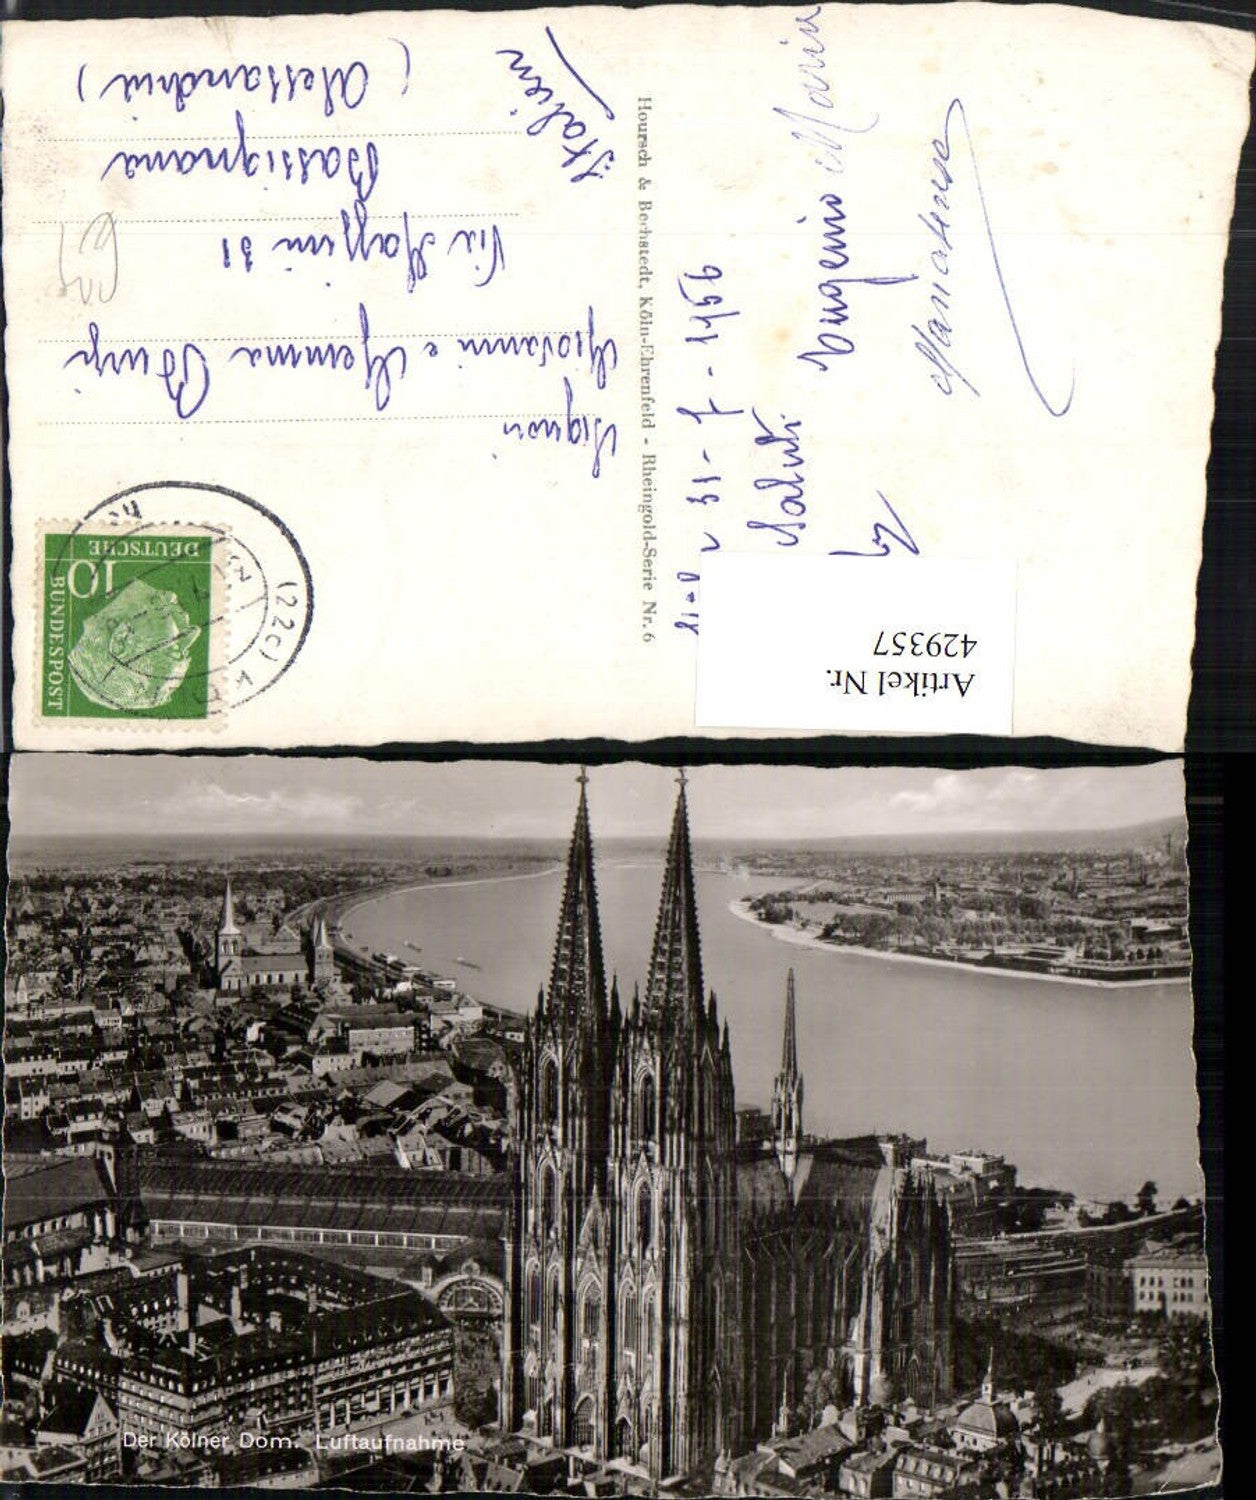 Signori
Giovanni e Gemma
Via Mazzini 31
Bassignana
(Alessandria)
Italien
Hoursch & Bechstedt, Köln-Ehrenfeld - Rheingold-Serie Nr. 6
31-7-1956
Saluti
Eugenio Maria
DEUTSCHE
BUNDESPOST
10
(22c)
Artikel Nr.
429357
Der Kölner Dom. Luftaufnahme